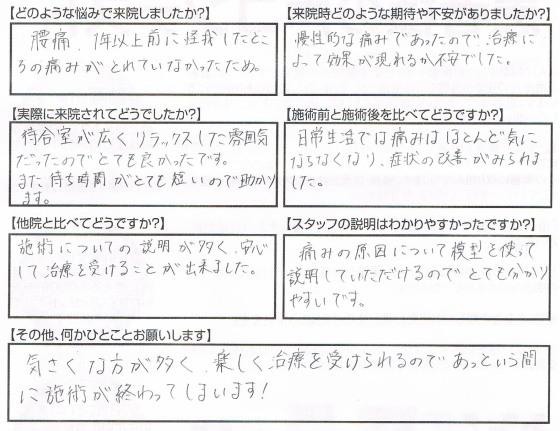 【どのような悩みで来院しましたか?】
腰痛、1年以上前に怪我したとこ
ろの痛みがとれていなかったため。
【来院時どのような期待や不安がありましたか?】
慢性的な痛みであったので、治療に
よって効果が現れるか不安でした。
【実際に来院されてどうでしたか?】
待合室が広くリラックスした雰囲気
だったのでとても良かったです。
また待ち時間がとても短いので助かり
ます。
【施術前と施術後を比べてどうですか?】
日常生活では痛みはほとんど気に
ならなくなり、症状の改善がみられま
した。
【他院と比べてどうですか?】
施術についての説明が多く、安心
して治療を受けることが出来ました。
【スタッフの説明はわかりやすかったですか?】
痛みの原因について模型を使って
説明していただけるのでとても分かり
やすいです。
【その他、何かひとことお願いします】
気さくな方が多く、楽しく治療を受けられるのであっという間
に施術が終わってしまいます!